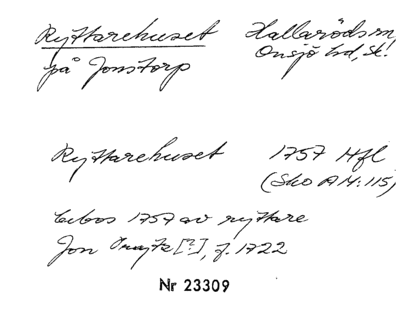 Ryttarehuset Hallaröds sn,
på Jonstorp Onsjö hd, Sk!
Ryttarehuset 1757 Hfl
(Sko A II:115)
bebos 1757 av ryttare
Jon [?], f. 1722
Nr 23309